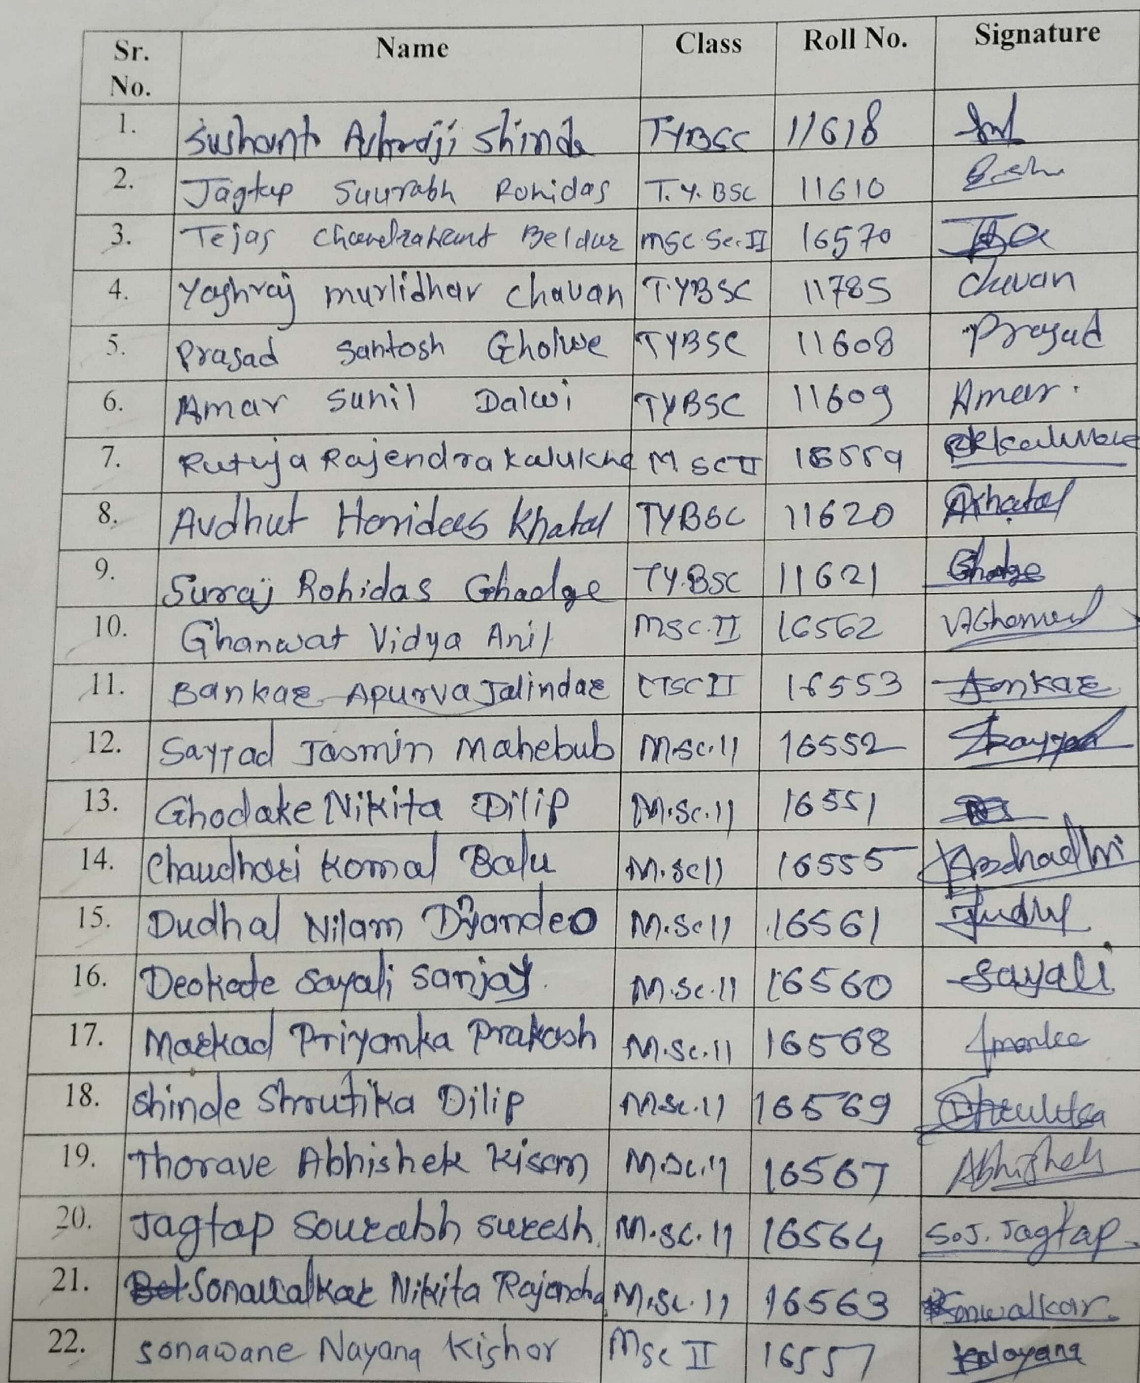 Sr. No. Name Class Roll No. Signature
1. Sushant Shinde TYBSC 11618
2. Jagtap Saurabh Rohidas T.Y. BSC 11610
3. Tejas Chandrakant Beldar MSC Sc. II 16570
4. Yashraj murlidhar chavan T.YBSC 11785 chavan
5. Prasad Santosh Gholwe TYBSC 11608 Prasad
6. Amar Sunil Dalwi TYBSC 11609 Amar.
7. Rutuja Rajendra Kalukhe M SC II 16559
8. Avdhut Haridas Khatal TYBSC 11620 AKhatal
9. Suraj Rohidas Ghadge TY.BSC 11621
10. Ghanwat Vidya Anil MSC.II 16562
11. Bankar Apurva Jalindar MSC II 16553
12. Sayyad Jasmin Mahebub M.Sc.II 16552
13. Ghodake Nikita Dilip M.Sc.II 16551
14. Chaudhari Komal Balu M.Sc II 16555
15. Dudhal Nilam Dyandeo M.Sc II 16561
16. Deokate Sayali Sanjay. M.Sc.II 16560 Sayali
17. Markad Priyanka Prakash M.Sc.II 16568
18. Shinde Shrutika Dilip M.Sc.II 16569
19. Thorave Abhishek Kisan M.Sc.II 16567 Abhishek
20. Jagtap Sourabh suresh. M.SC.II 16564 S.J. Jagtap
21. Sonawalkar Nikita Rajendra M.Sc.II 16563 Sonwalkar.
22. Sonawane Nayana Kishor MSc II 16557 Nayana